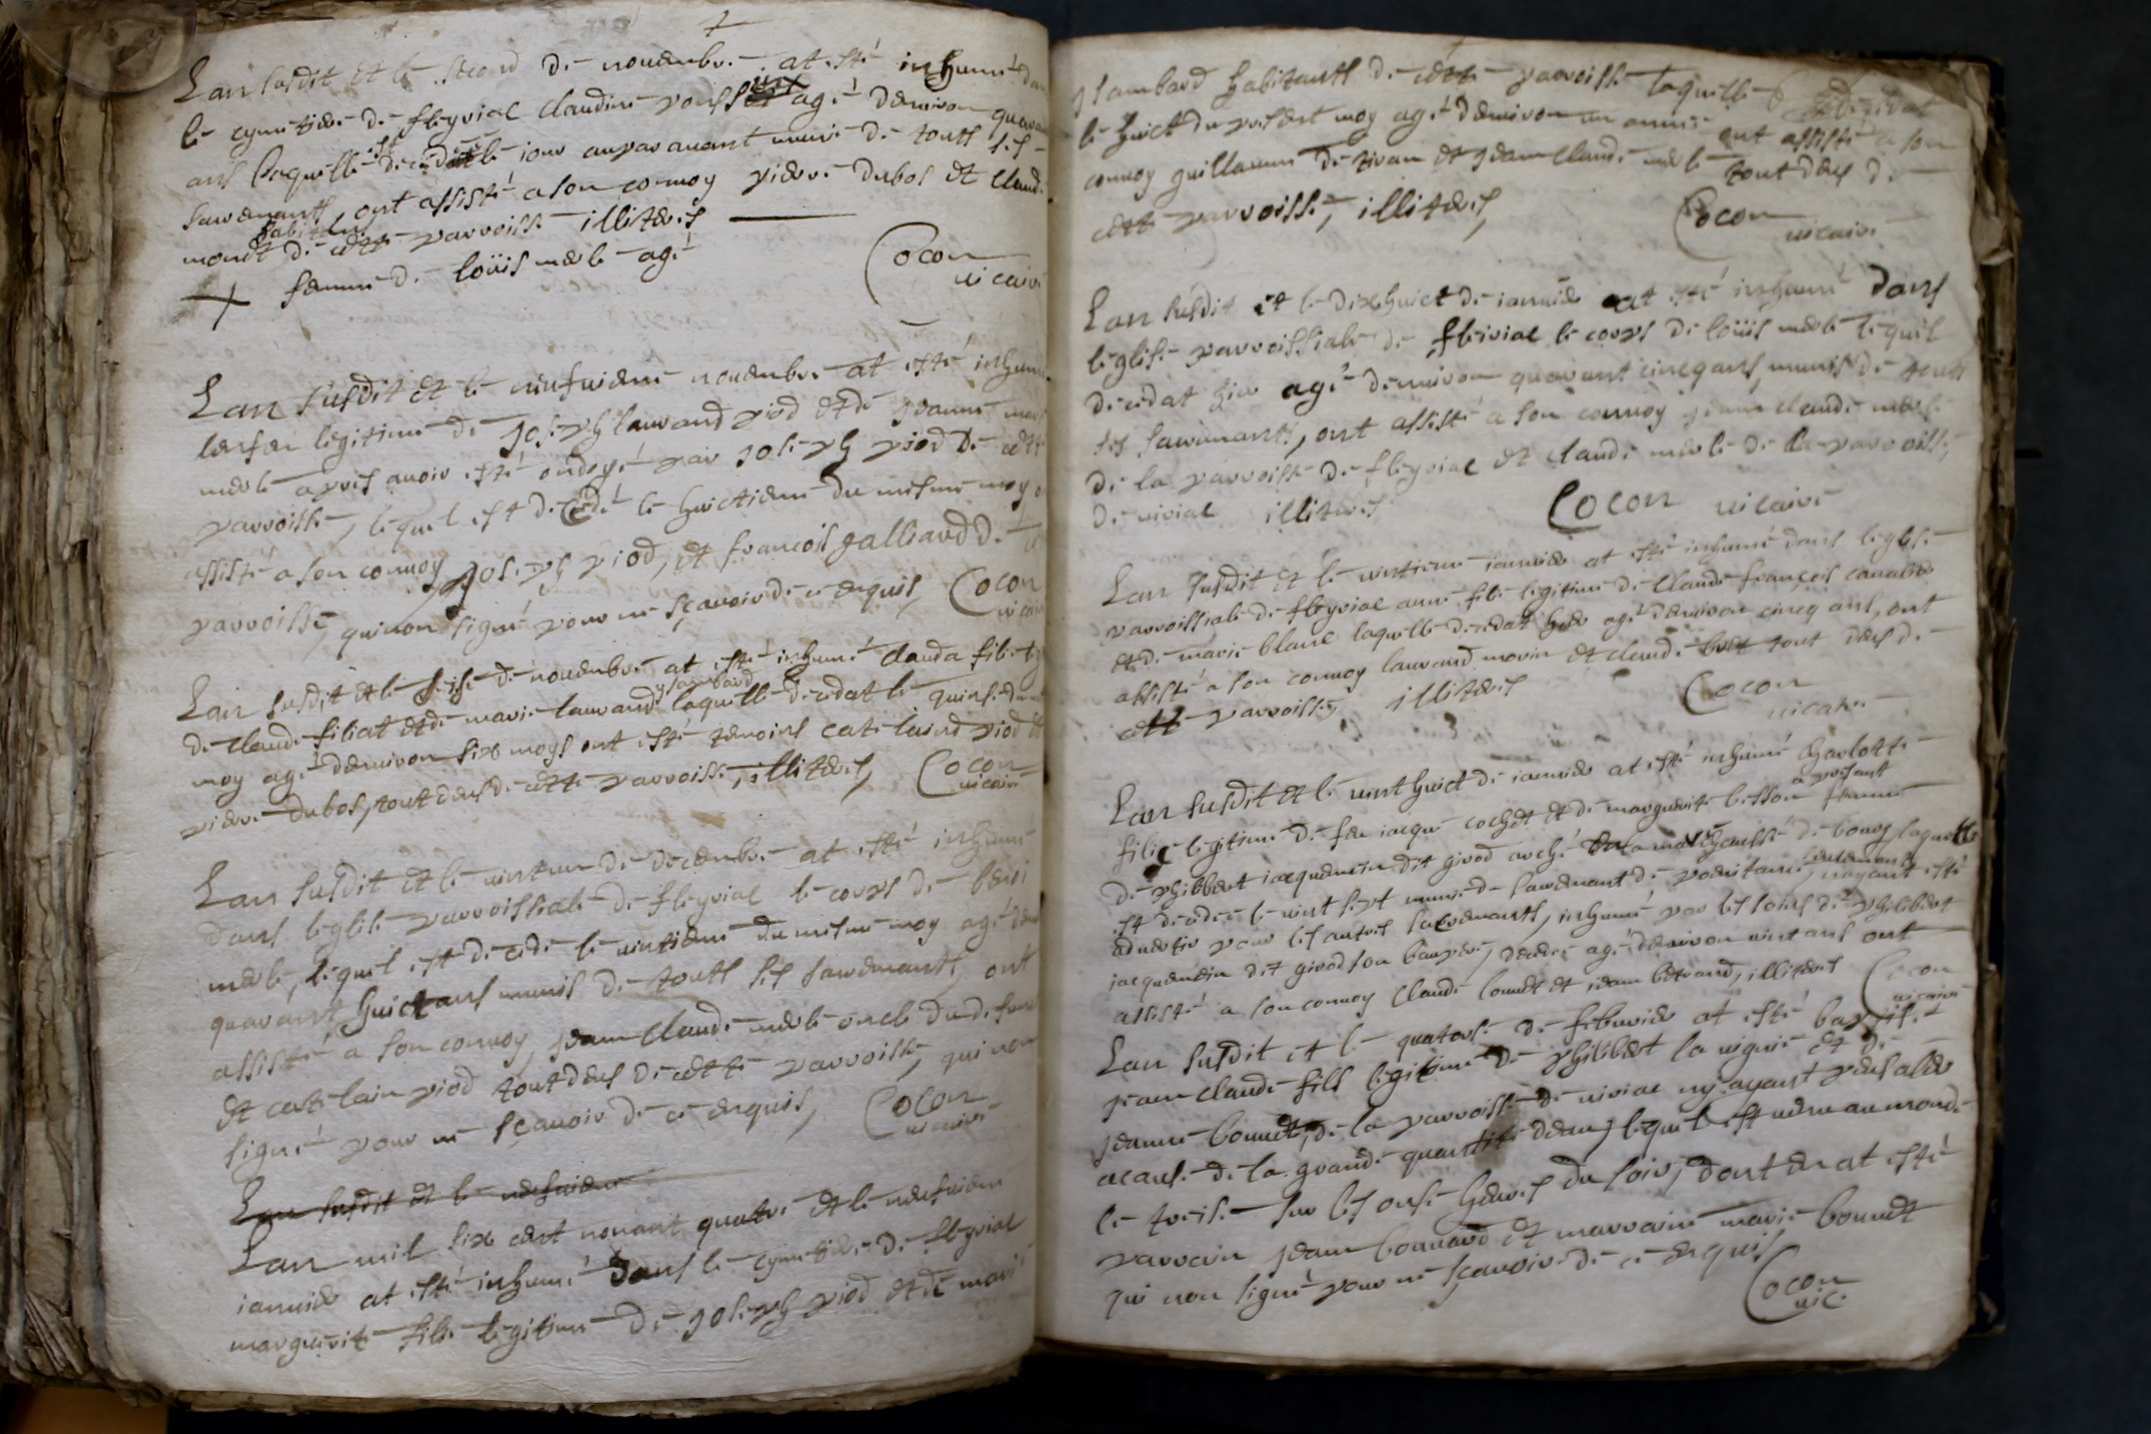 Lan susdit et le second de nouembre at esté inhumé dans
le cymetiere de fleyriat claudine ponsset agé denuiron quarant
ans laquelle est decedée le iour auparauant munie de touts ses
sacremants, ont assisté a son conuoy pierre dubos et claude
monet habitants de cette parroisse illiteres
+ femme de loüis merle agé
Cocon
uicaire
Lan susdit et le neufuieme nouembre at esté inhumé
lenfan legitime de joseph laurand piod et de jeanne marie
merle apres auoir esté ondoyé par joseph piod de cette
parroisse, lequel est decedé le huictieme du mesme moy ont
assisté a son conuoy joseph piod, et francois galliard de cette
parroisse, qui non signé pour ne sçauoir de ce enquis, Cocon
uicaire
Lan susdit et le seise de nouembre at esté inhumé clauda filiat
de claude filiat et de marie laurand ysambard laquelle decedat le quinse du
moy agé denuiron six moys ont esté temoins catelaind piod et
pierre dubos, tout deus de cette parroisse, illiteres, Cocon
uicaire
Lan susdit et le uintun de decembre at esté inhumé
dans leglise parroissiale de fleyriat le corps de benoi
merle, lequel est decedé le uintieme du mesme moy agé denuiron
quarant huict ans munis de touts ses sacremants, ont
assisté a son conuoy jean claude merle oncle du defunt
et catelain piod tout deus de cette parroisse, qui non
signé pour ne scauoir de ce enquis, Cocon
uicaire
Lan susdit et le neufuieme
Lan mil six cent nonant quatre et le neufuieme
ianuier at esté inhumé dans le cymetiere de fleyriat
marguerite fille legitime de joseph piod et de marie
jsambard habitants de cette parroisse laquelle decedat
le huict du present moy agé denuiron un année ont assisté a son
conuoy guillaume de tiuan et jean claude merle tout deus de
cette parroisse, illiteres,
Cocon
uicaire
Lan susdit et le dixhuict de ianuier at esté inhumé dans
leglise parroissiale de fleiriat le corps de loüis merle lequel
decedat hier agé denuiron quarant cincq ans, munis de touts
ses sacremants, ont assisté a son conuoy jean claude merle
de la parroisse de fleyriat et claude merle de la parroisse,
de uiriat illiteres
Cocon uicaire
Lan susdit et le uintieme ianuier at esté inhumé dans leglise
parroissiale de fleyriat anne fille legitime de claude françois caualier
et de marie blanc laquelle decedat hier agé denuiron cincq ans, ont
assisté a son conuoy laurand morin et claude tout deus de
cette parroisse, illiteres
Cocon
uicaire
Lan susdit et le uint huict de ianuier at esté inhumé charlotte
fillie legitime de feu iacque cochet et de marguerite besson a present femme
de philibert iacquemin dit girod arché de la maréchaussé de bourg laquelle
est decedée le uint sept munie du sacremant de poenitance, seulemant nayant esté
aduertis pour les autres sacremants, inhumé par les soins de philibert
iacquemin dit girod son beaupere, agé denuiron uint ans ont
assisté a son conuoy claude bonnet et jean bertrand, illiteres Cocon
uicaire
Lan susdit et le quatorse de februier at esté baptisé
jean claude fils legitime de philibert la uignie et de
jeanne bonnet, de la parroisse de uiriat ny ayant peus aller
acause de la grande quantité deau, lequel est uenu au monde
le treise sur les onse heures du soir, dont en at esté
parrain jean bonnard et marraine marie bonnet
qui non signé pour ne sçauoir de ce enquis,
Cocon
uic.